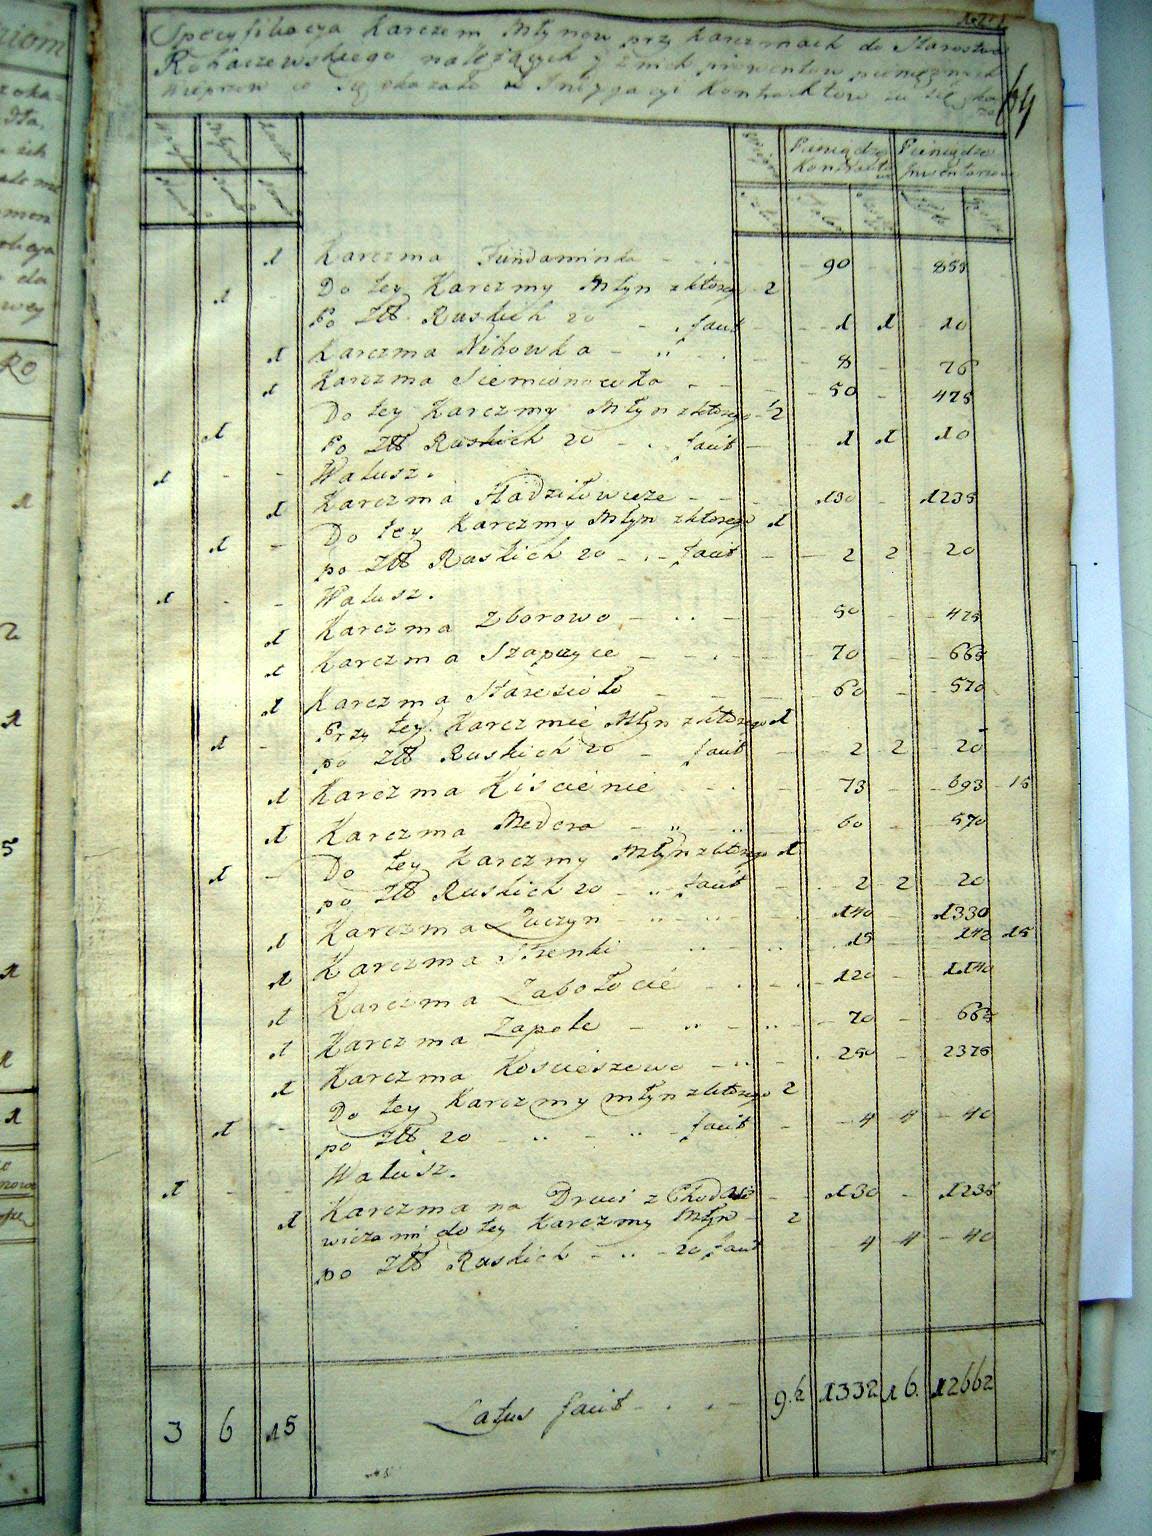 Specyfikacya Karczem Młynow przy Karczmach do Starostwa
Rohaczewskiego należących z nich prowentow pieniężnych
Wieprzow co się okazało z Kontraktow
64
Pieniądze Pieniądze
Kontraktowe Inwentarzowe
1 Karczma Fundaminka - - 90 - 855
1 - Do tey Karczmy Młyn z ktorego 2
po Zł Ruskich 20 - facit - - 1 1 10
1 Karczma Nihowka - - 8 - 76
1 Karczma Siemionowka - - 50 - 475
Do tey Karczmy Młyn z ktorego ½
1 po Zł Ruskich 20 - facit - 1 1 10
1 - - Walusz.
1 Karczma Hadziłowicze - - 130 - 1235
Do tey Karczmy Młyn z ktorego 1
1 - po Zł Ruskich 20 - facit - 2 2 20
1 - - Walusz.
1 Karczma Zborowo - - 50 - 475
1 Karczma Szapczyce - - 70 - 665
1 Karczma Staresioło - - 60 - 570
Przy tey Karczmie Młyn z ktorego 1
1 - po Zł Ruskich 20 - facit - 2 2 20
1 Karczma Kiscienie - - 73 - 693 - 15
1 Karczma Medera - - 60 - 570
1 - Do tey Karczmy Młyn z ktorego 1
po Zł Ruskich 20 - facit - 2 2 20
1 Karczma Łuczyn - - 140 - 1330
1 Karczma Strenki - - 15 - 142 15
1 Karczma Zabołocie - - 120 - 1140
1 Karczma Zapole - - 70 - 665
1 Karczma Koscieszewo - - 250 - 2375
Do tey Karczmy młyn z ktorego 2
1 - po Zł 20 - - facit - 4 4 40
1 - - Walusz.
1 Karczma na Druci z Chodaso - - 130 - 1235
wiczami do tey Karczmy Młyn - 2
po Zł Ruskich - - 20 facit 4 4 40
3 6 15 Latus facit - - - 9.½ 1332 16. 12662